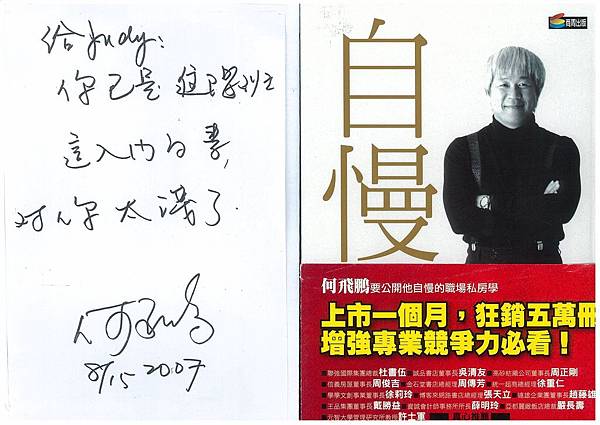 給Judy:
你已是
這入門的書,
對你太淺了.
何飛鵬
8/15 2007
商周出版
自慢
何飛鵬要公開他自慢的職場私房學
上市一個月，狂銷五萬冊
增強專業競爭力必看！
■聯強國際集團總裁杜書伍■誠品書店董事長吳清友■董事長周正剛
■信義房屋董事長周俊吉■金石堂書店總經理周傳芳■統一超商總經理徐重仁
■學學文創事業董事長徐莉玲■博客來網路書店總經理張天立■遠雄企業團董事長趙藤雄
■王品集團董事長戴勝益■資誠會計師事務所所長薛明玲■亞都麗緻飯店總裁嚴長壽
■元智大學管理研究所教授許士軍 真心推薦